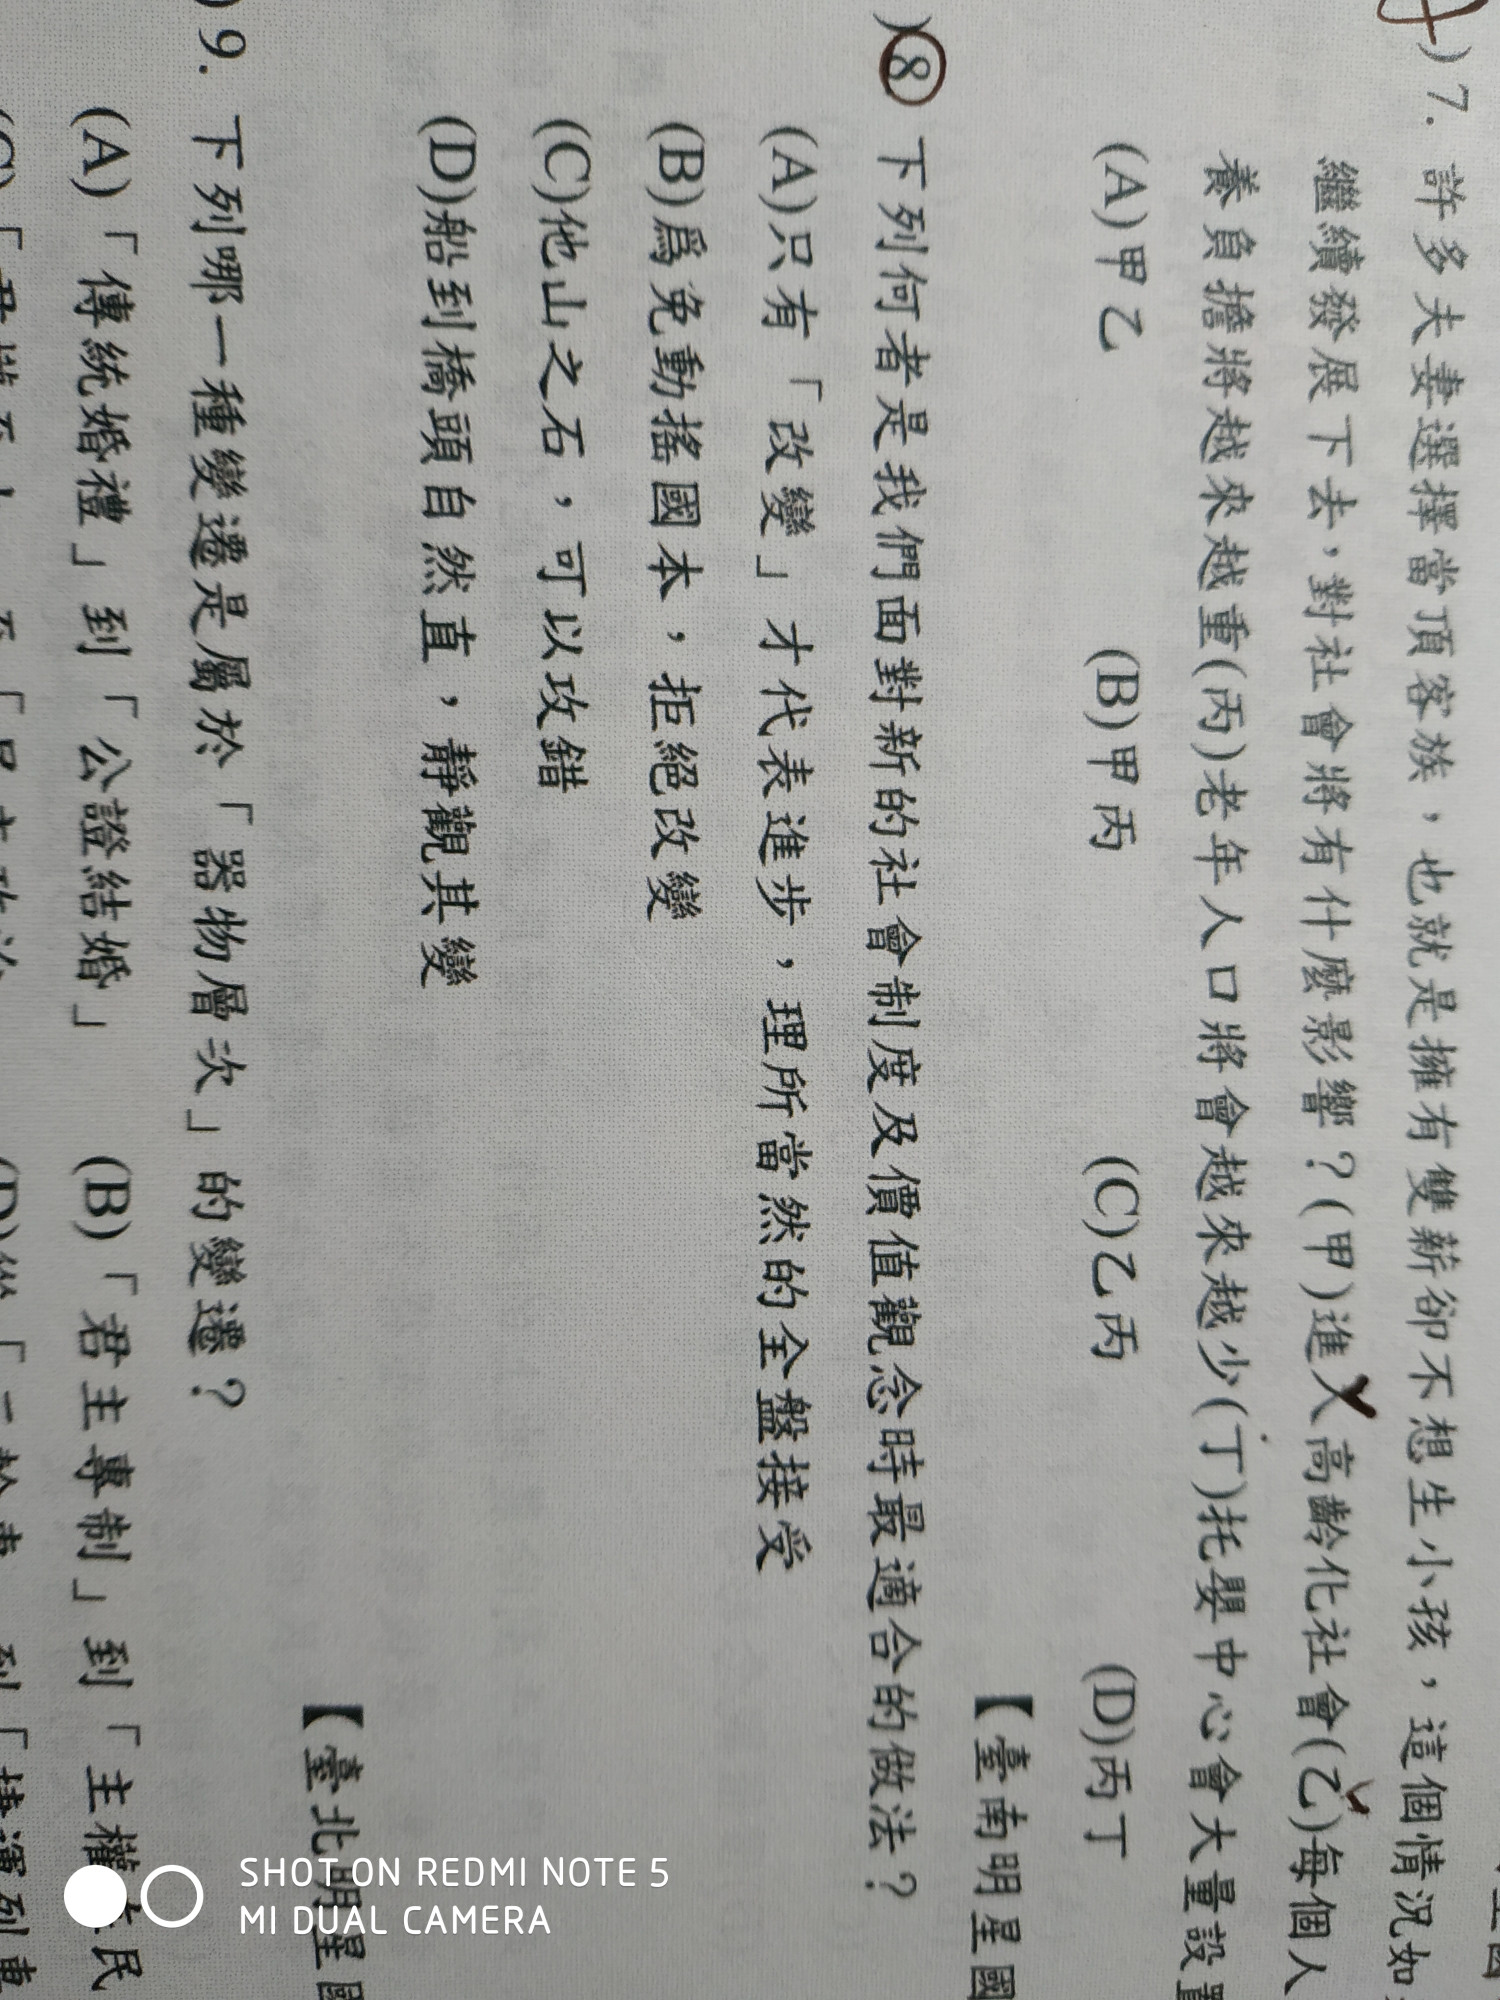 )7. 許多夫妻選擇當頂客族，也就是擁有雙薪卻不想生小孩，這個情況如
繼續發展下去，對社會將有什麼影響？(甲)進入高齡化社會(乙)每個人
養負擔將越來越重(丙)老年人口將會越來越少(丁)托嬰中心會大量設置
(A)甲乙 (B)甲丙 (C)乙丙 (D)丙丁
【臺南明星國
)8 下列何者是我們面對新的社會制度及價值觀念時最適合的做法？
(A)只有「改變」才代表進步，理所當然的全盤接受
(B)爲免動搖國本，拒絕改變
(C)他山之石，可以攻錯
(D)船到橋頭自然直，靜觀其變
【臺北明星國
)9. 下列哪一種變遷是屬於「器物層次」的變遷？
(A)「傳統婚禮」到「公證結婚」 (B)「君主專制」到「主權在民
SHOT ON REDMI NOTE 5
MI DUAL CAMERA